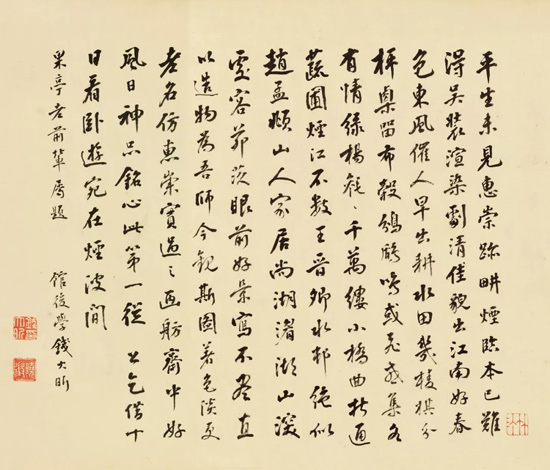 平生未見惠崇跡畊煙臨本已難
得吳裝渲染劇清佳貌出江南好春
色東風催人早出耕水田幾棱棋分
枰㮚留布穀鵓鴣鳴或飛或集各
有情綠楊毿〻千萬縷小橋曲折通
蔬圃煙江不数王晉卿水邨絶似
趙孟頫山人家居尚湖渚湖山深
處容茆茨眼前好景寫不盡直
以造物為吾師今觀斯圖著色淡更
老名仿惠崇實過之画舫齋中好
風日神品銘心此第一從公乞借十
日看卧遊宛在煙波間
果亭老前輩属題
館後學錢大昕